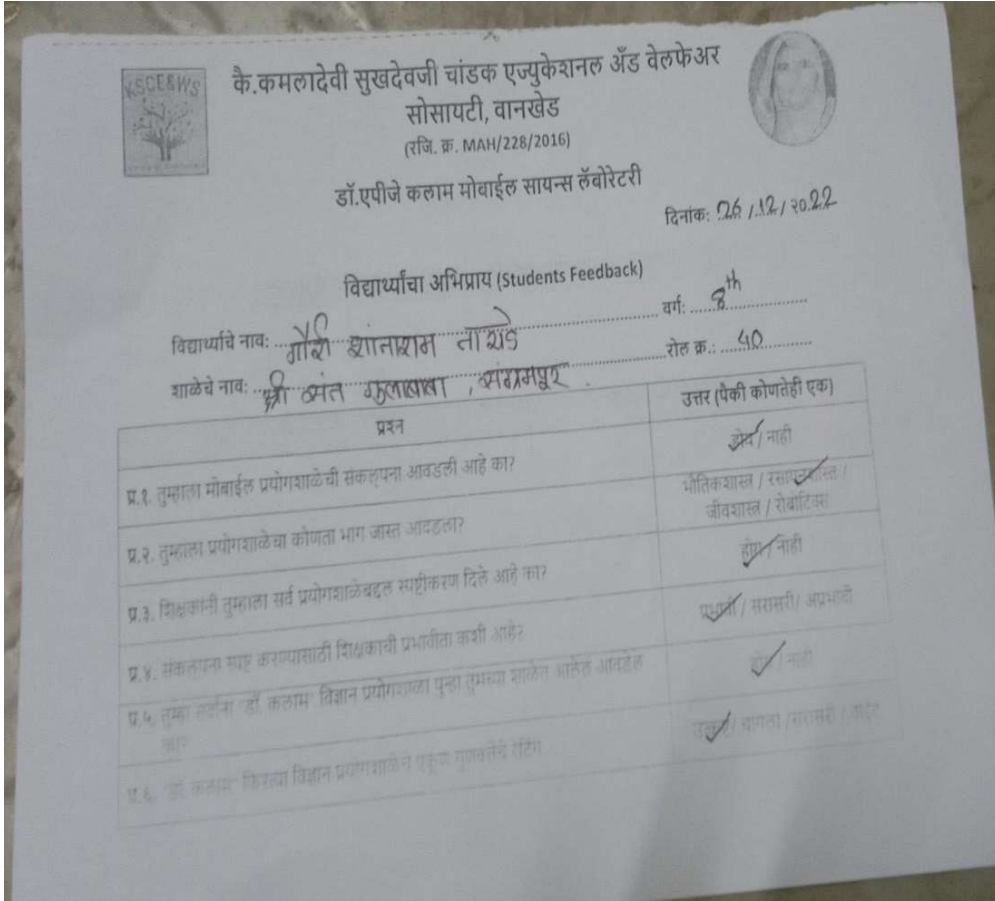 KSCE&WS
कै.कमलादेवी सुखदेवजी चांडक एज्युकेशनल अँड वेलफेअर
सोसायटी, वानखेड
(रजि. क्र. MAH/228/2016)
डॉ.एपीजे कलाम मोबाईल सायन्स लॅबोरेटरी
दिनांक: 26/12/2022
विद्यार्थ्यांचा अभिप्राय (Students Feedback)
विद्यार्थ्याचे नाव: गौरी शांताराम तायडे वर्ग: 8th
शाळेचे नाव: श्री संत गुलाबबाबा, संग्रामपूर. रोल क्र.: 40
प्रश्न उत्तर (पैकी कोणतेही एक)
प्र.१. तुम्हाला मोबाईल प्रयोगशाळेची संकल्पना आवडली आहे का? होय / नाही
प्र.२. तुम्हाला प्रयोगशाळेचा कोणता भाग जास्त आवडला? भौतिकशास्त्र / रसायनशास्त्र /
जीवशास्त्र / रोबोटिक्स
प्र.३. शिक्षकांनी तुम्हाला सर्व प्रयोगशाळेबद्दल स्पष्टीकरण दिले आहे का? होय / नाही
प्र.४. संकल्पना स्पष्ट करण्यासाठी शिक्षकाची प्रभावीता कशी आहे? प्रभावी / सरासरी/ अप्रभावी
प्र.५. तुम्हा सर्वांना 'डॉ. कलाम' विज्ञान प्रयोगशाळा पुन्हा तुमच्या शाळेत आलेले आवडेल होय / नाही
का?
प्र.६. 'डॉ. कलाम' फिरत्या विज्ञान प्रयोगशाळेचे एकूण गुणवत्तेचे रेटिंग उत्कृष्ट / चांगला / सरासरी / वाईट